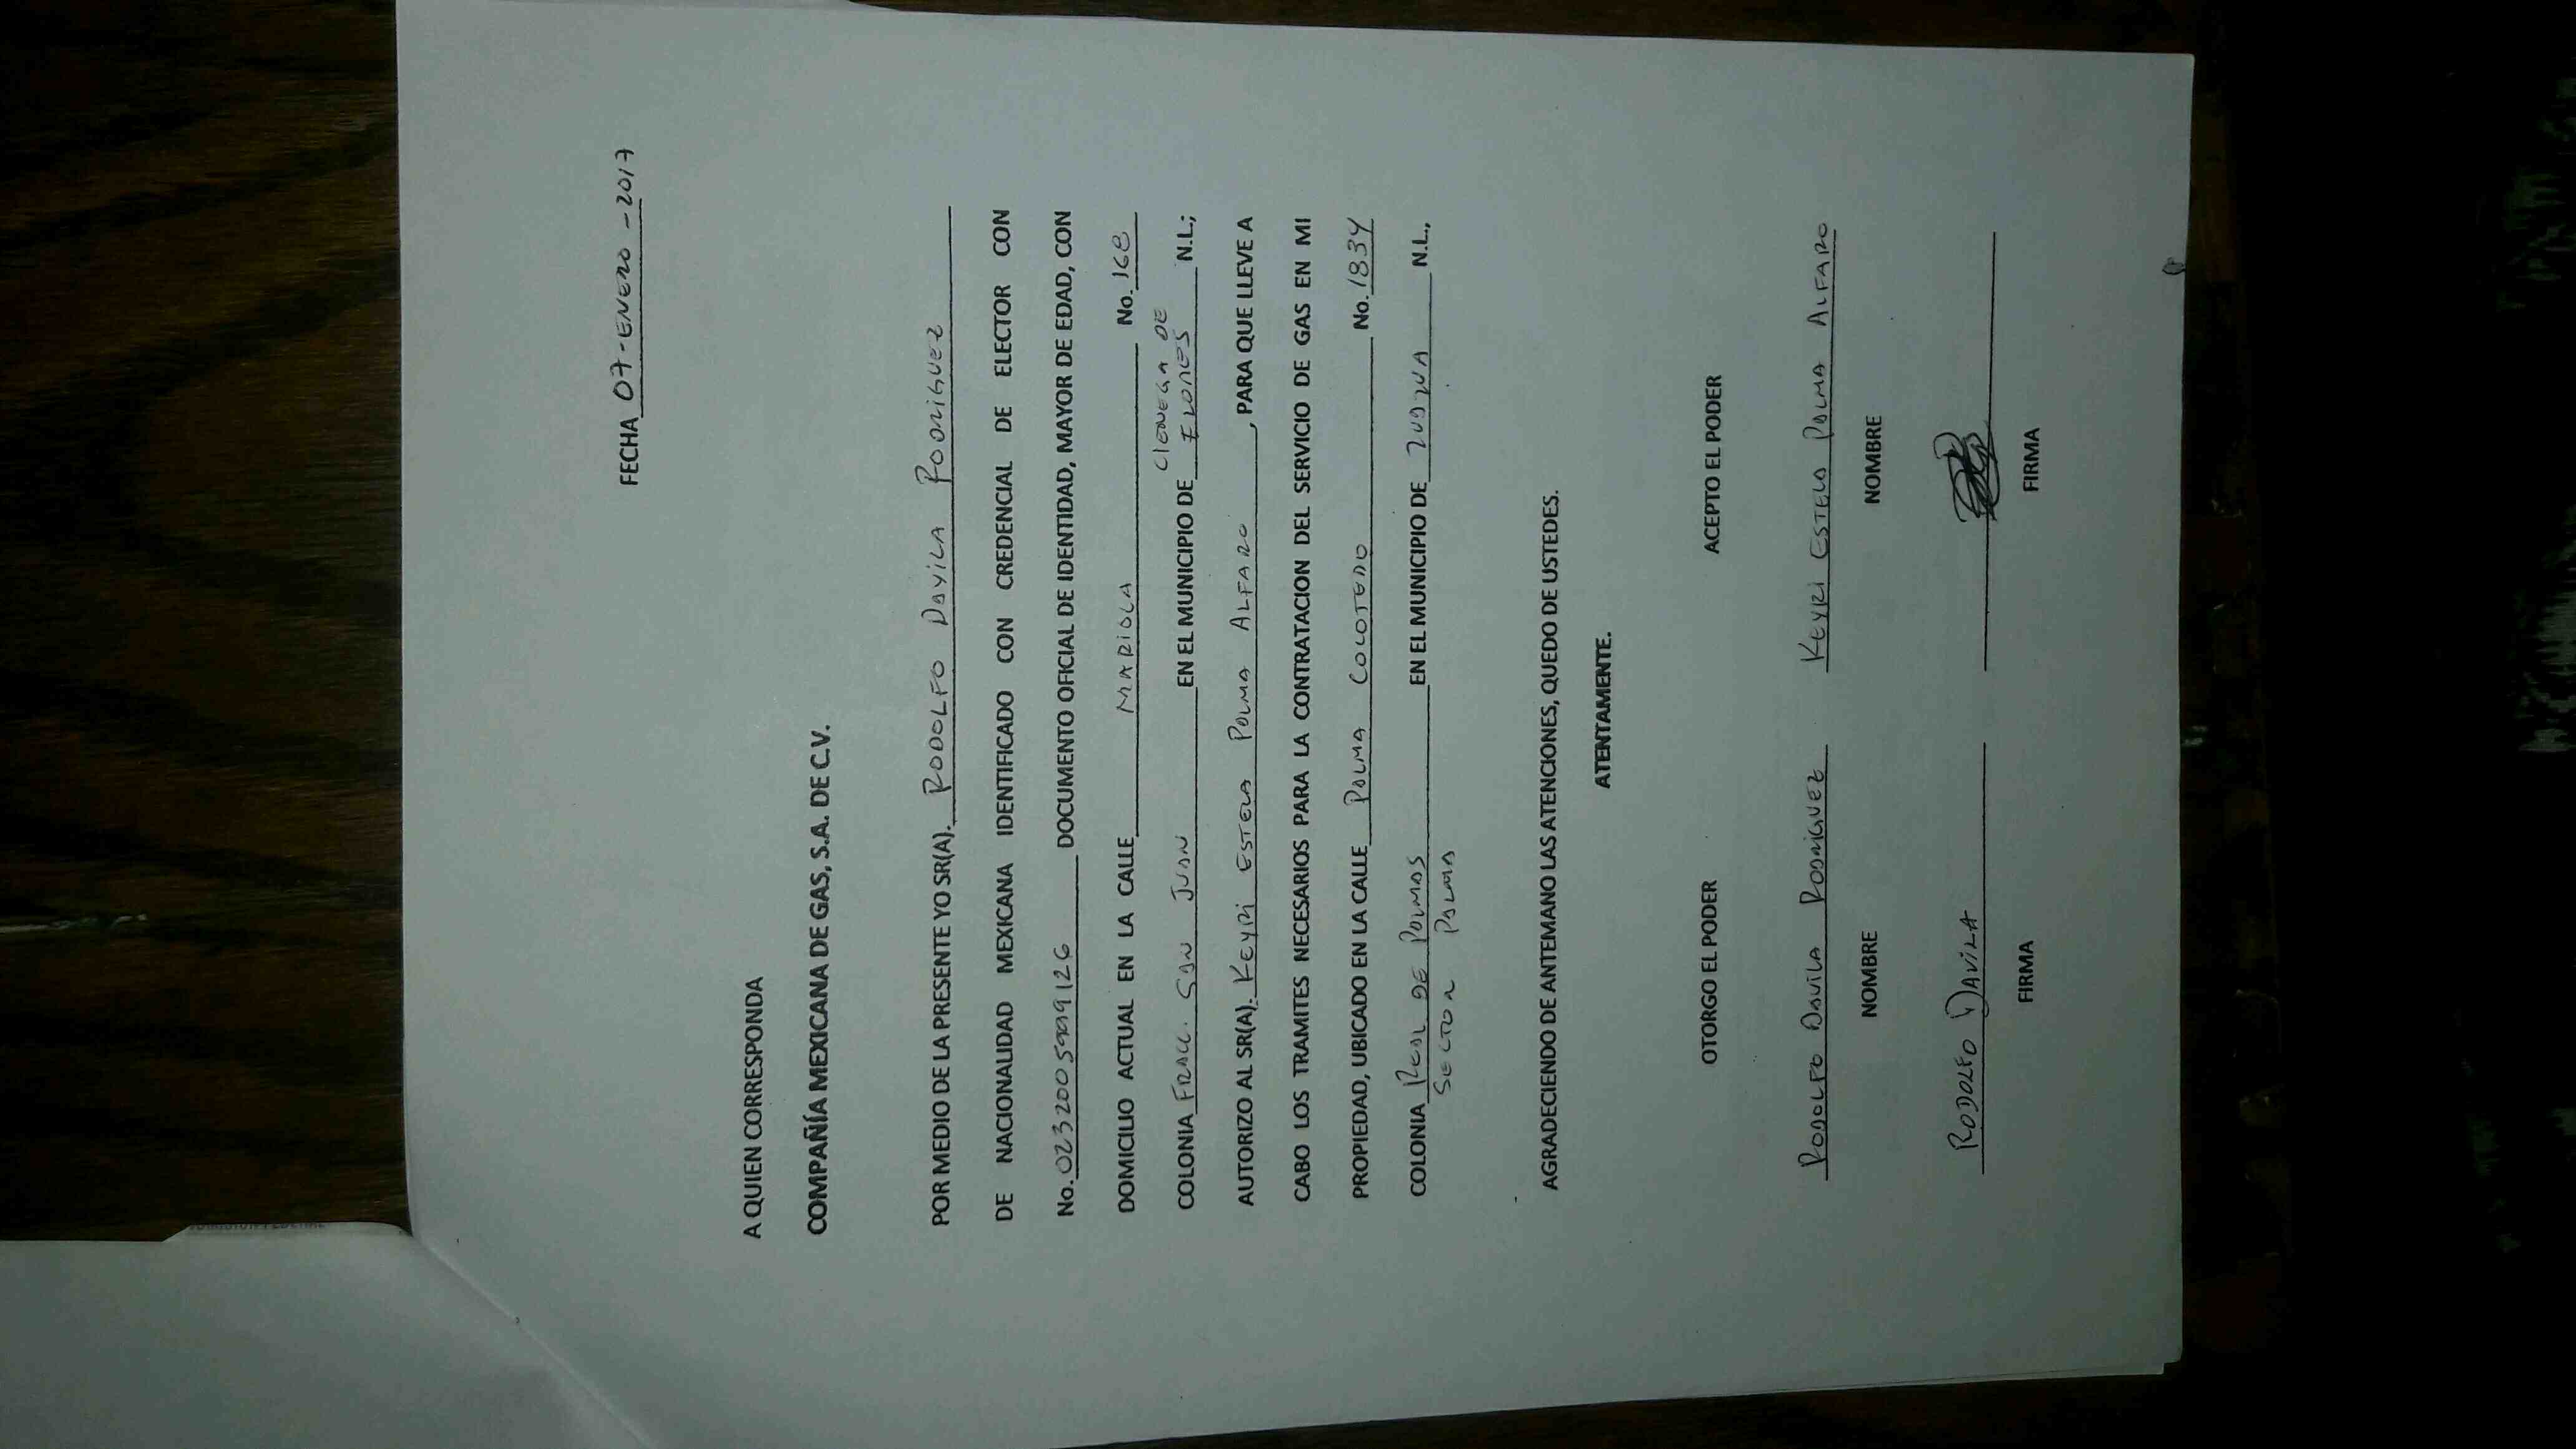 FECHA 07-ENERO-2017
A QUIEN CORRESPONDA
COMPAÑÍA MEXICANA DE GAS, S.A. DE C.V.
POR MEDIO DE LA PRESENTE YO SR(A). RODOLFO DAVILA RODRIGUEZ
DE NACIONALIDAD MEXICANA IDENTIFICADO CON CREDENCIAL DE ELECTOR CON
No. DOCUMENTO OFICIAL DE IDENTIDAD, MAYOR DE EDAD, CON
DOMICILIO ACTUAL EN LA CALLE MARIOLA No. 168
COLONIA FRACC. SAN JUAN EN EL MUNICIPIO DE CIENEGA DE FLORES N.L.;
AUTORIZO AL SR(A). KEYRI ESTELA PALMA ALFARO, PARA QUE LLEVE A
CABO LOS TRAMITES NECESARIOS PARA LA CONTRATACION DEL SERVICIO DE GAS EN MI
PROPIEDAD, UBICADO EN LA CALLE PALMA COCOTERO No. 1834
COLONIA REAL DE PALMAS EN EL MUNICIPIO DE ZUAZUA N.L.,
SECTOR PALMA
AGRADECIENDO DE ANTEMANO LAS ATENCIONES, QUEDO DE USTEDES.
ATENTAMENTE.
OTORGO EL PODER ACEPTO EL PODER
RODOLFO DAVILA RODRIGUEZ KEYRI ESTELA PALMA ALFARO
NOMBRE NOMBRE
RODOLFO DAVILA
FIRMA FIRMA